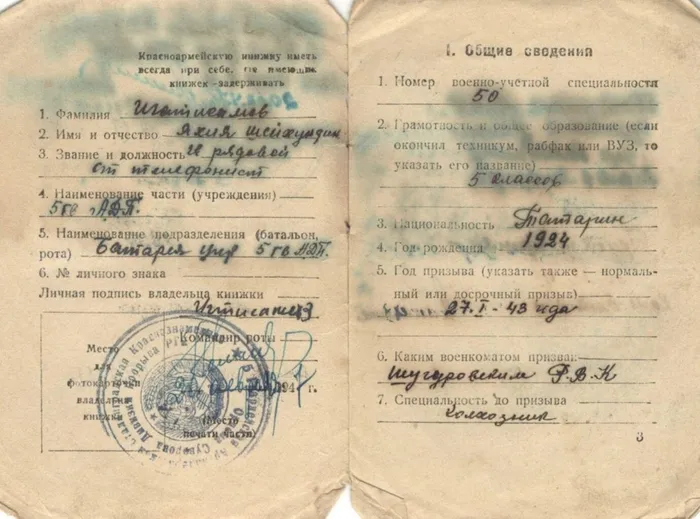 Красноармейскую книжку иметь
всегда при себе. Не имеющих
книжек задерживать
1. Фамилия Игтисамов
2. Имя и отчество Яхия
3. Звание и должность рядовой
ст телефонист
4. Наименование части (учреждения)
5 гв АДП.
5. Наименование подразделения (батальон,
рота) Батарея упр 5 гв АДП.
6. № личного знака
Личная подпись владельца книжки
Командир роты
Место
для
фотокарточки
владельца
книжки
194 г.
(Место
печати части)
I. Общие сведения
1. Номер военно-учетной специальности
50
2. Грамотность и общее образование (если
окончил техникум, рабфак или ВУЗ, то
указать его название)
5 классов
3. Национальность Татарин
4. Год рождения 1924
5. Год призыва (указать также — нормаль-
ный или досрочный призыв)
27.I-43 года
6. Каким военкоматом призван
Шугуровским Р.В.К
7. Специальность до призыва
Колхозник
3